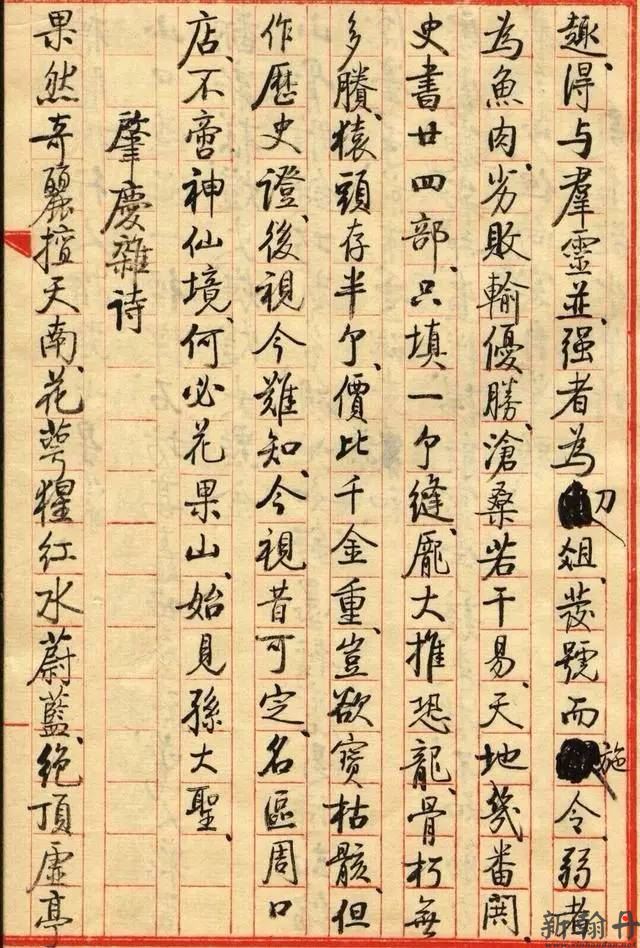 趣、得与羣靈並、强者為刀俎、發號而施令、弱者
為魚肉、劣敗輸優勝、滄桑若干易、天地幾番閧、
史書廿四部、只填一个縫、龐大推恐龍、骨朽無
多賸、猿頭存半个、價比千金重、豈欲寶枯骸、但
作歷史證、後視今難知、今視昔可定、名區周口
店、不啻神仙境、何必花果山、始見孫大聖、
肇慶雜诗
果然奇麗擅天南、花萼猩红水蔚藍、绝頂虚亭
新翰